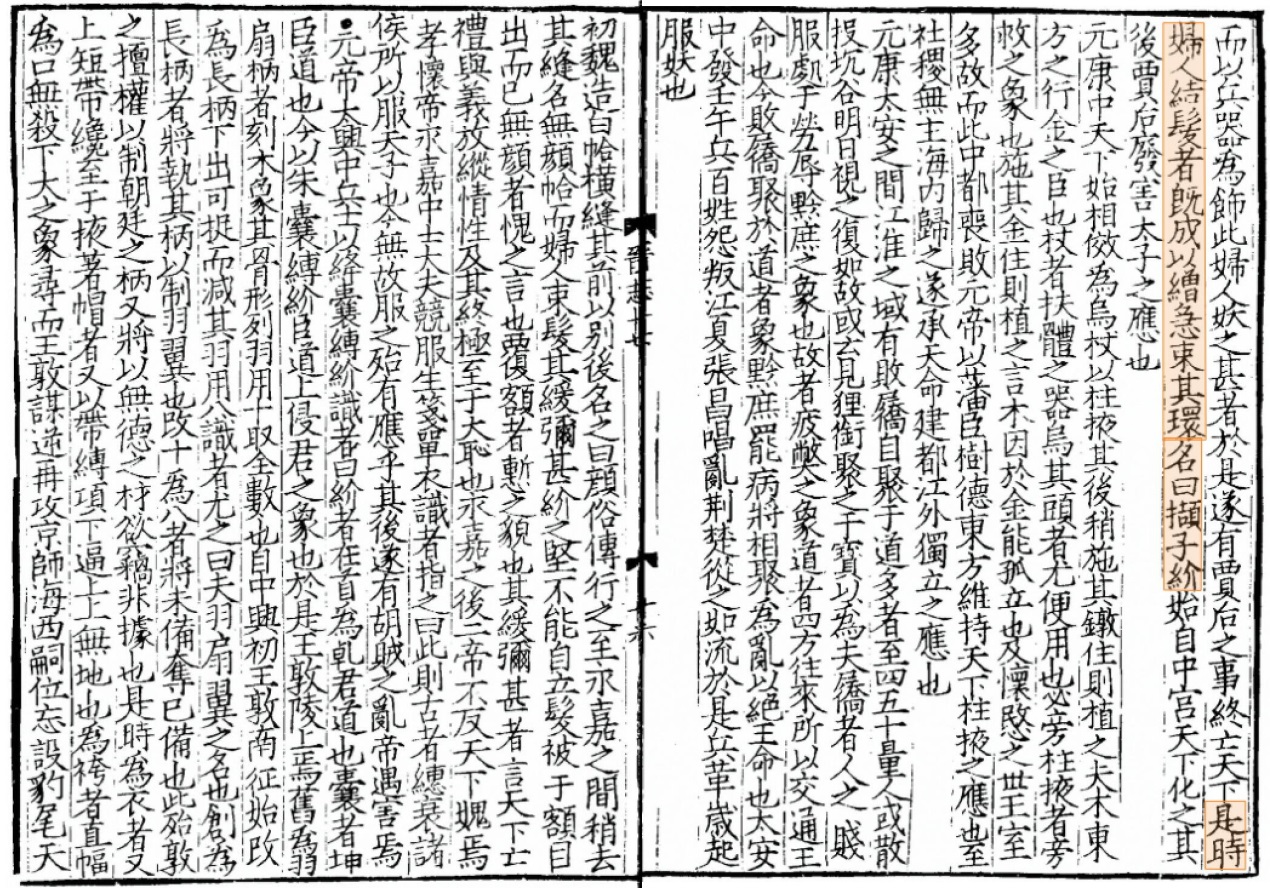 而以兵器為飾此婦人妖之甚者於是遂有賈后之事終亡天下是時
婦人結髮者既成以繒急束其環名曰擷子紒始自中宮天下化之其
後賈后廢害太子之應也
元康中天下始相傚為烏杖以柱掖其後稍施其鐓住則植之夫木東
方之行金之臣也杖者扶體之器烏其頭者尤便用也必旁柱掖者旁
救之象也施其金住則植之言木因於金能孤立也及懷愍之世王室
多故而此中都喪敗元帝以藩臣樹德東方維持天下柱掖之應也至
社稷無主海內歸之遂承天命建都江外獨立之應也
元康太安之間江淮之域有敗屩自聚于道多者至四五十量人或散
投坑谷明日視之復如故或云見狸銜聚之干寶以為夫屩者人之賤
服處于勞辱黔庶之象也故者疲獘之象道者四方往來所以交通王
命也今敗屩聚於道者象黔庶罷病將相聚為亂以絕王命也太安
中發壬午兵百姓怨叛江夏張昌唱亂荆楚從之如流於是兵革歲起
服妖也
晉志十七
十六
初魏造白帢橫縫其前以別後名之曰顏俗傳行之至永嘉之間稍去
其縫名無顏帢而婦人束髮其緩彌甚紒之堅不能自立髮被于額目
出而已無顏者愧之言也覆額者慙之貌也其緩彌甚者言天下亡
禮與義放縱情性及其終極至于大恥也永嘉之後二帝不反天下媿焉
孝懷帝永嘉中士大夫競服生箋單衣識者指之曰此則古者繐衰諸
侯所以服天子也今無故服之殆有應乎其後遂有胡賊之亂帝遇害焉
元帝太興中兵士以絳囊縛紒識者曰紒者在首為乹君道也囊者坤
臣道也今以朱囊縛紒臣道上侵君之象也於是王敦陵上焉舊為羽
扇柄者刻木象其骨形列羽用十取全數也自中興初王敦南征始改
為長柄下出可捉而減其羽用八識者尤之曰夫羽扇翼之名也創為
長柄者將執其柄以制羽翼也改十為八者將未備奪已備也此殆敦
之擅權以制朝廷之柄又將以無德之材欲竊非據也是時為衣者又
上短帶纔至于掖著帽者又以帶縛項下逼上上無地也為袴者直幅
為口無殺下大之象尋而王敦謀逆再攻京師海西嗣位忘設豹尾天